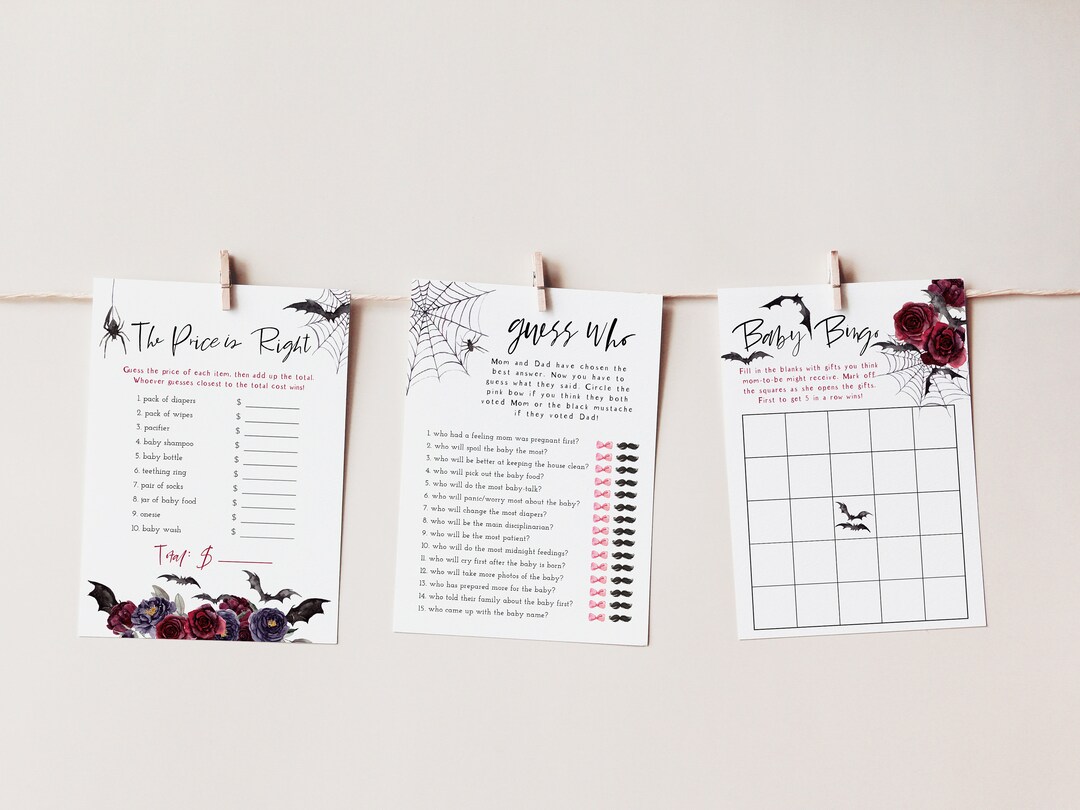 The Price is Right
Guess the price of each item, then add up the total.
Whoever guesses closest to the total cost wins!
1. pack of diapers $
2. pack of wipes $
3. pacifier $
4. baby shampoo $
5. baby bottle $
6. teething ring $
7. pair of socks $
8. jar of baby food $
9. onesie $
10. baby wash $
Total: $
guess who
Mom and Dad have chosen the
best answer. Now you have to
guess what they said. Circle the
pink bow if you think they both
voted Mom or the black mustache
if they voted Dad!
1. who had a feeling mom was pregnant first?
2. who will spoil the baby the most?
3. who will be better at keeping the house clean?
4. who will pick out the baby food?
5. who will do the most baby-talk?
6. who will panic/worry most about the baby?
7. who will change the most diapers?
8. who will be the main disciplinarian?
9. who will be the most patient?
10. who will do the most midnight feedings?
11. who will cry first after the baby is born?
12. who will take more photos of the baby?
13. who has prepared more for the baby?
14. who told their family about the baby first?
15. who came up with the baby name?
Baby Bingo
Fill in the blanks with gifts you think
mom-to-be might receive. Mark off
the squares as she opens the gifts.
First to get 5 in a row wins!